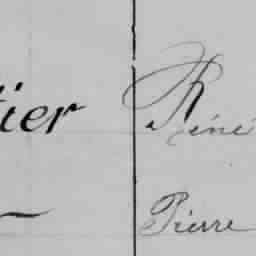 tier René
Pierre